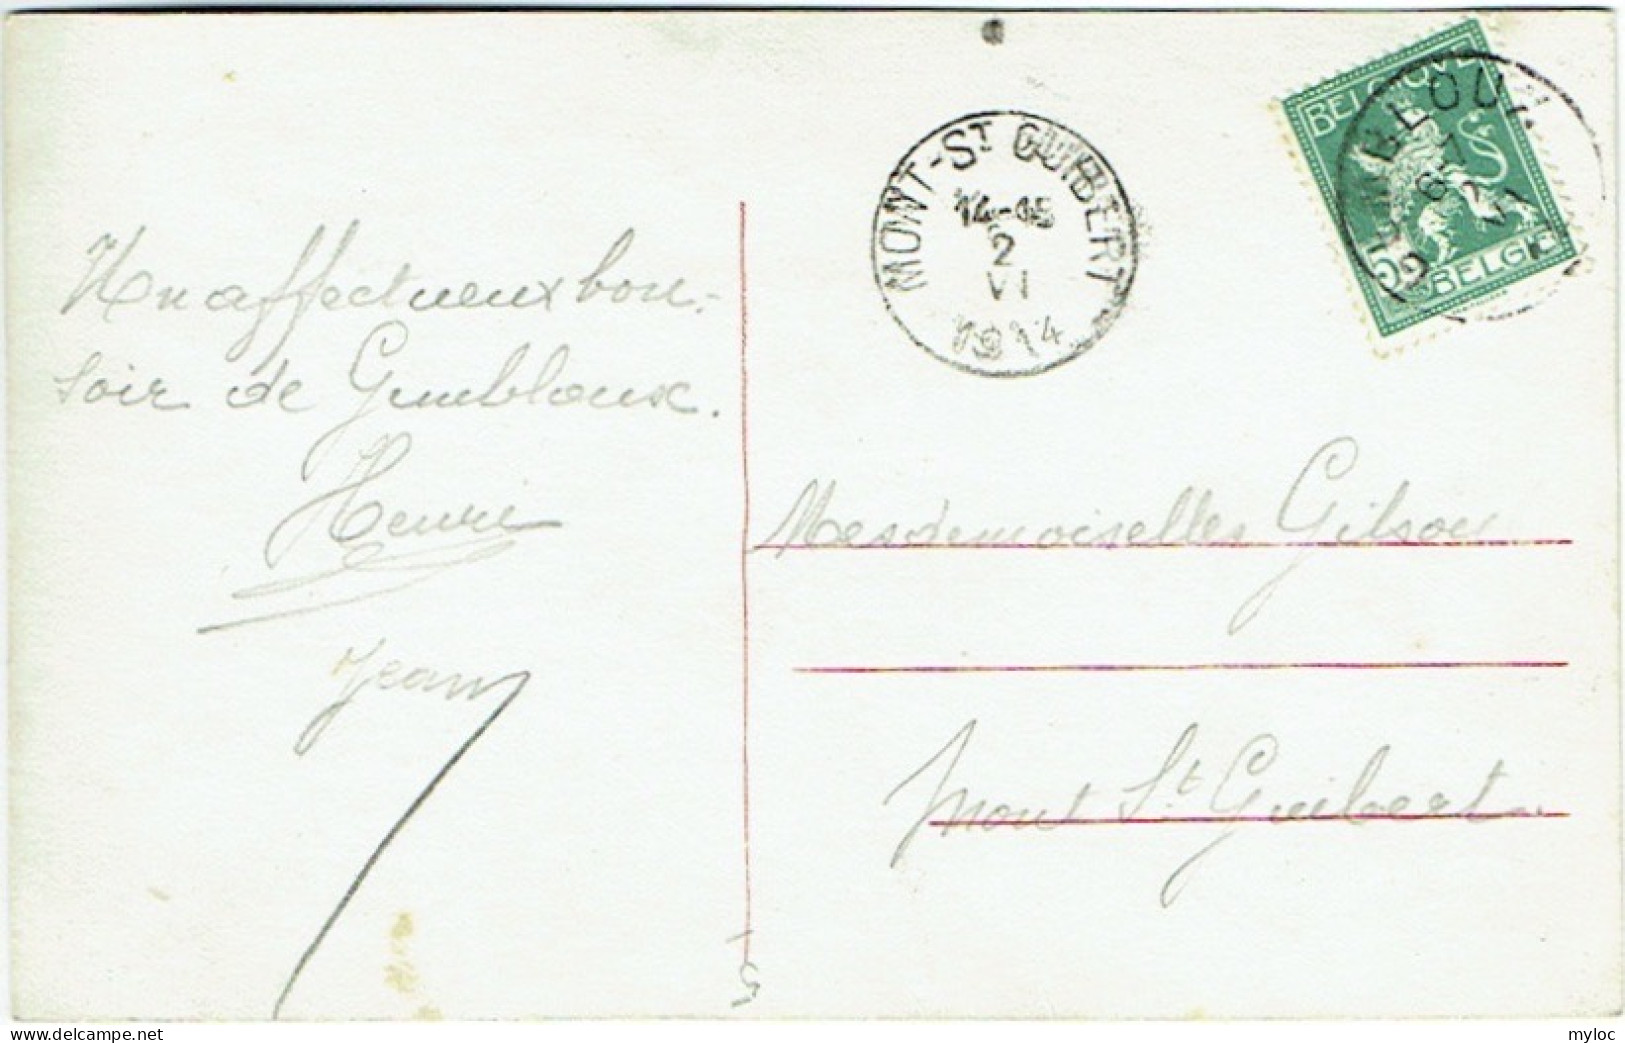 Un affectueux bon-
soir de Gembloux.
Henri
Jean
MONT-ST GUIBERT
14-15
2
VI
1914
BELGIQUE
5
BELGIË
GEMBLOUX
2
VI
Mesdemoiselles Gilson
Mont St Guibert
delcampe.net
myloc